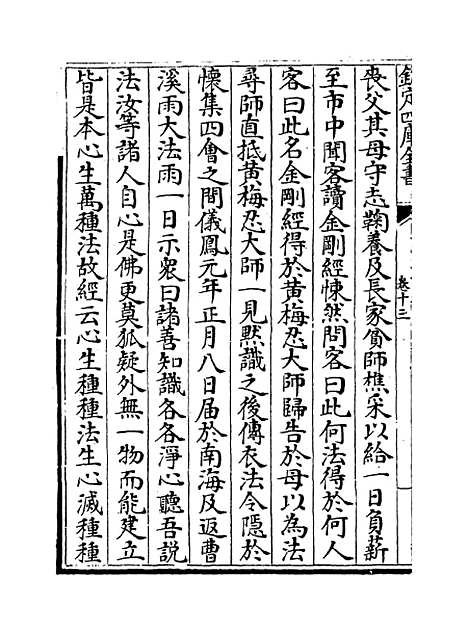 欽定四庫全書
卷十三
喪父其母守志鞠養及長家貧師樵采以給一日負薪
至市中聞客讀金剛經悚然問客曰此何法得於何人
客曰此名金剛經得於黃梅忍大師歸告於母以為法
尋師直抵黃梅忍大師一見默識之後傳衣法令隱於
懷集四會之間儀鳳元年正月八日届於南海及返曹
溪雨大法雨一日示衆曰諸善知識各各淨心聽吾說
法汝等諸人自心是佛更莫狐疑外無一物而能建立
皆是本心生萬種法故經云心生種種法生心滅種種